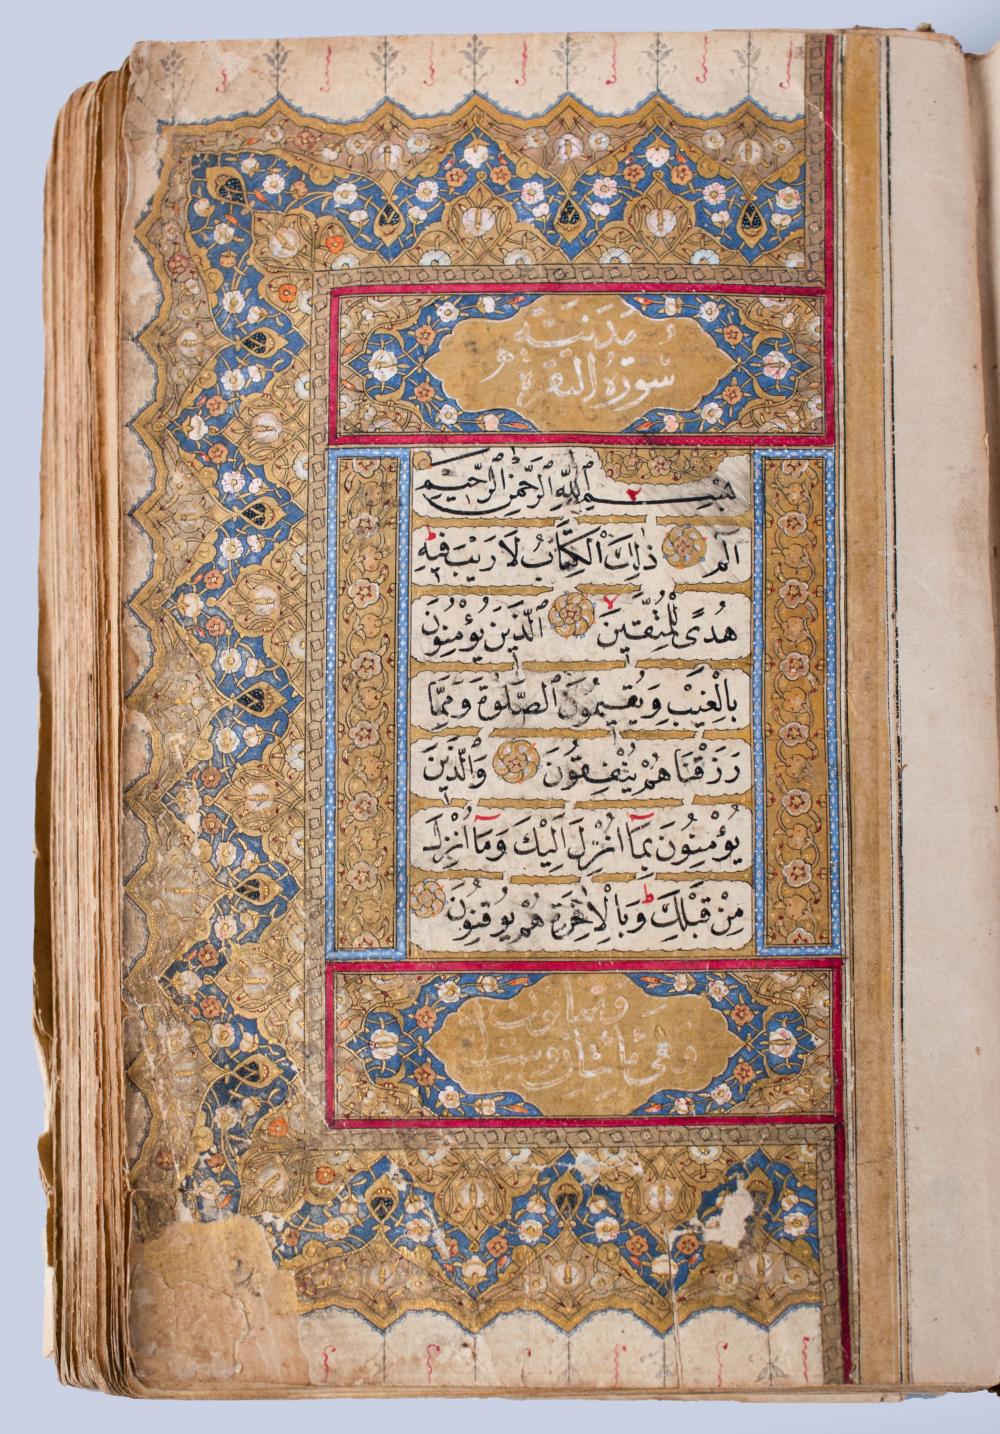 مدنية
سورة البقرة
بِسْمِ ٱللَّهِ ٱلرَّحْمَٰنِ ٱلرَّحِيمِ
الٓمٓ ذٰلِكَ الْكِتَابُ لَا رَيْبَ فِيهِ ط
هُدًى لِلْمُتَّقِينَ لا اَلَّذِينَ يُؤْمِنُونَ
بِالْغَيْبِ وَيُقِيمُونَ الصَّلٰوةَ وَمِمَّا
رَزَقْنَاهُمْ يُنْفِقُونَ وَالَّذِينَ
يُؤْمِنُونَ بِمَٓا اُنْزِلَ اِلَيْكَ وَمَٓا اُنْزِلَ
مِنْ قَبْلِكَ ط وَبِالْاٰخِرَةِ هُمْ يُوقِنُونَ
وثمانون
وهى مائتان وست